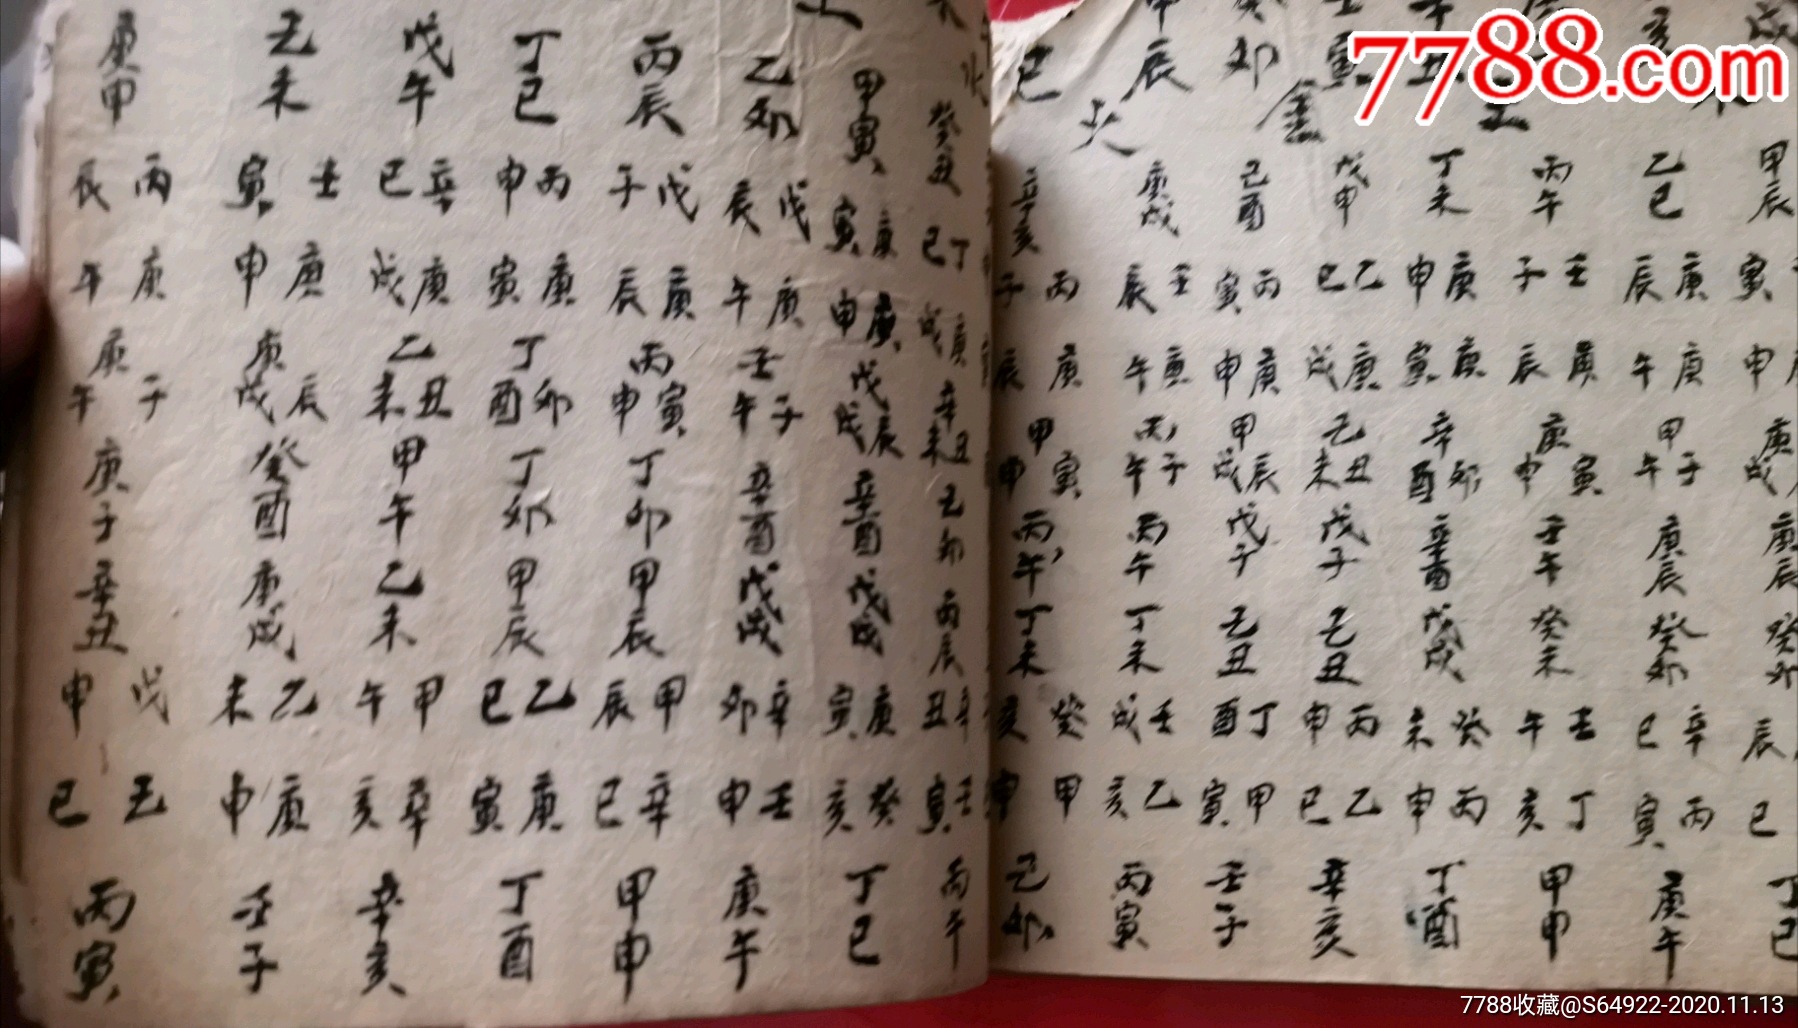 7788.com
戌甲辰寅申庚戌庚辰癸卯辰巳丁巳
亥乙巳庚辰庚午甲子午庚辰癸卯辛巳丙寅庚午
丙午壬子庚辰庚寅申壬午癸未壬午丁亥甲申
丁未庚申庚寅辛卯酉辛酉戊戌癸未丙申丁酉
寅土戊申乙巳庚戌乙丑未戊子己丑丙申乙巳辛亥
卯金己酉丙寅庚申甲辰戌戊子己丑丁酉甲寅壬子
甲辰庚戌壬辰庚午丙子午丙午丁未壬戌乙亥丙寅
巳火辛亥丙子庚辰甲寅申丙午丁未癸亥甲申己卯
水癸丑丁巳庚戌辛丑未己卯丙辰辛丑壬寅丙午
甲寅庚寅庚申戊辰戌辛酉戊戌庚寅癸亥丁巳
乙卯戊辰庚午壬子午辛酉戊戌辛卯壬申庚午
丙辰戊子庚辰丙寅申丁卯甲辰甲辰辛巳甲申
丁巳丙申庚寅丁卯酉丁卯甲辰乙巳庚寅丁酉
戊午辛巳庚戌乙丑未甲午乙未甲午辛亥辛亥
己未壬寅庚申庚辰戌癸酉庚戌乙未庚申壬子
庚申丙辰庚午庚子午庚子辛丑戊申己巳丙寅
7788收藏@S64922-2020.11.13